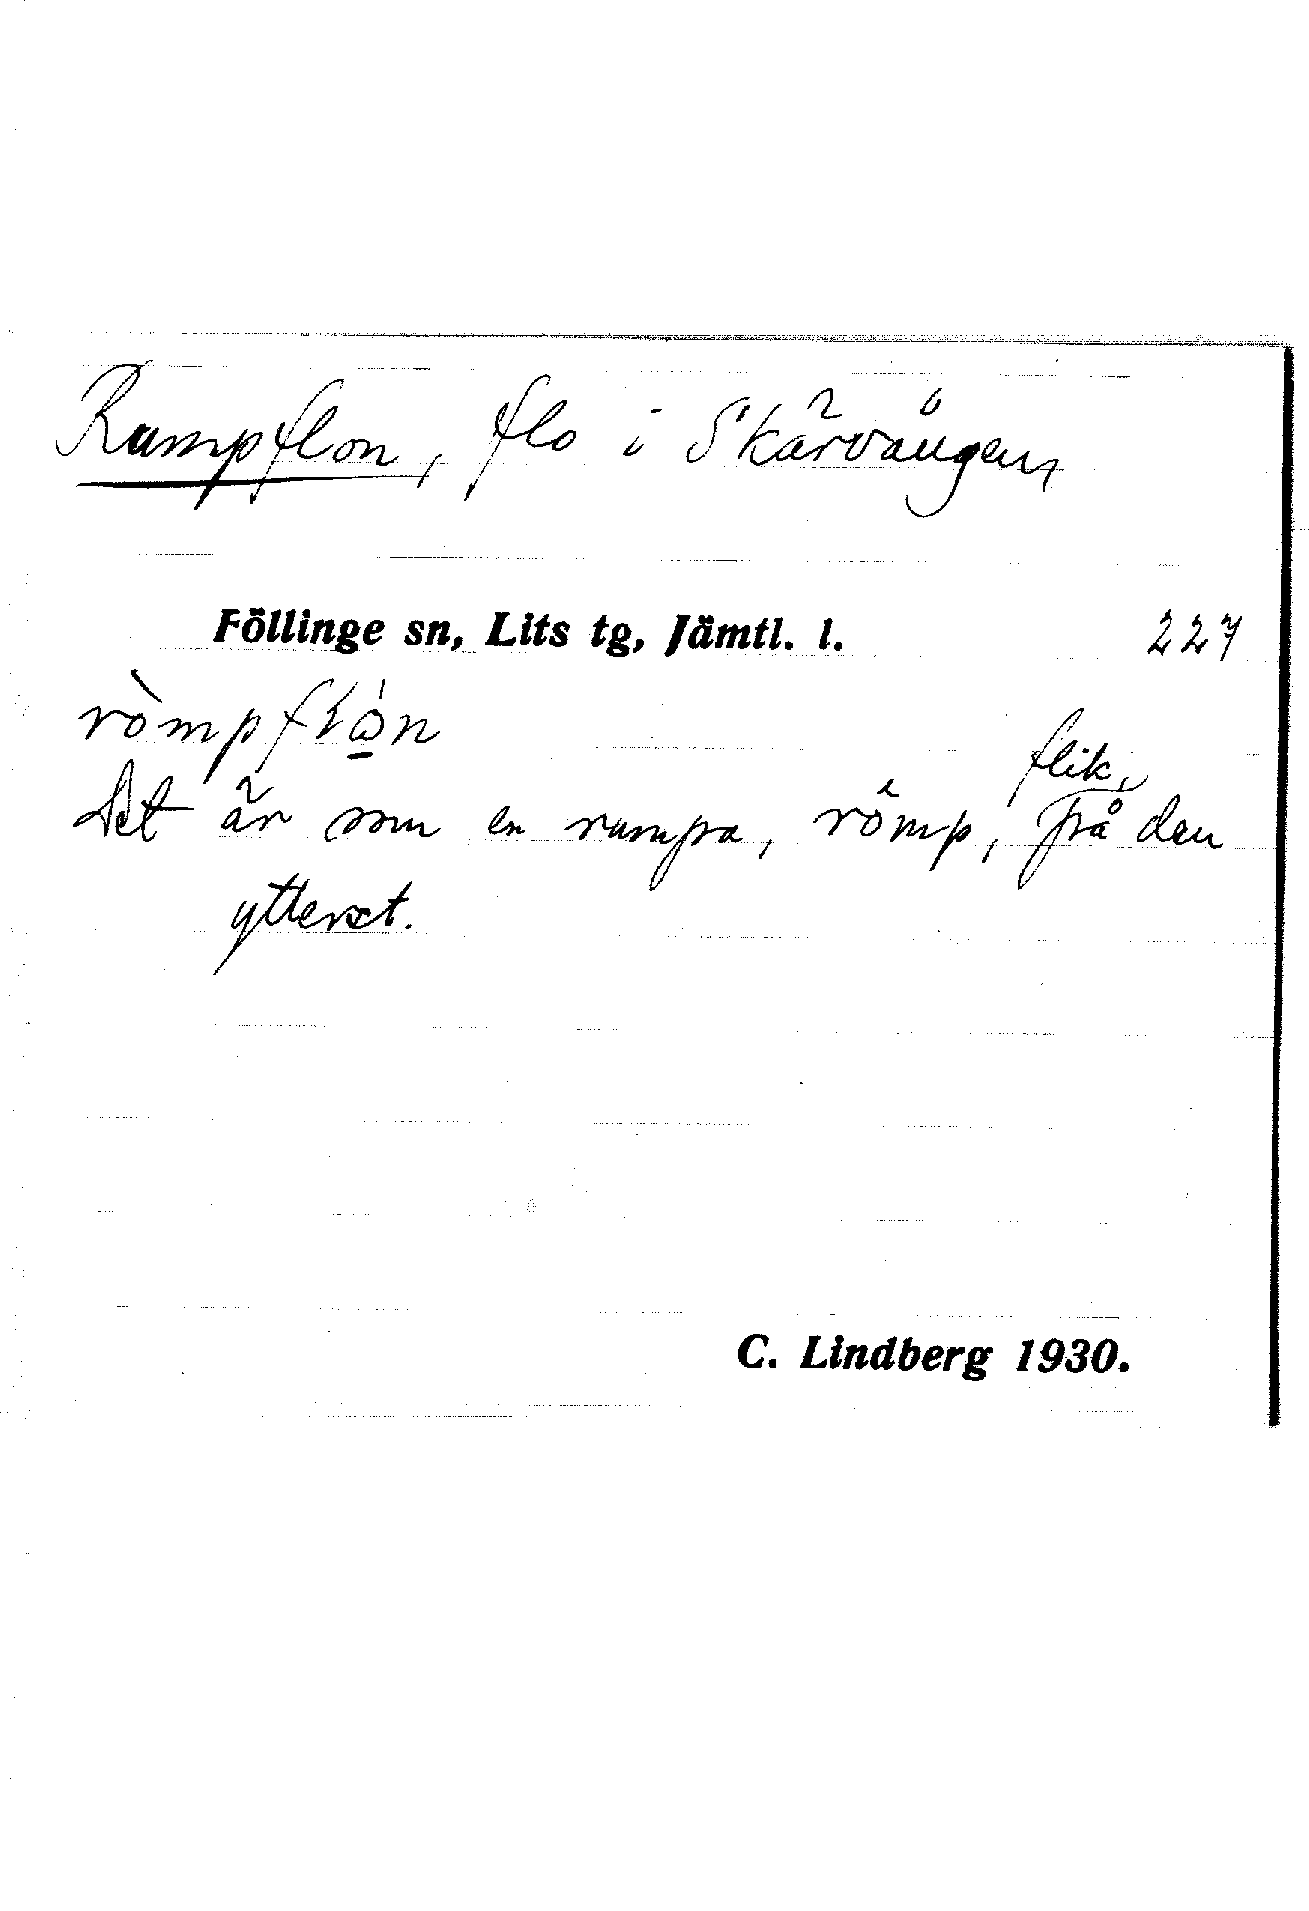 Rumpflon, flo i Skärvången,
Föllinge sn, Lits tg, Jämtl. l. 227
Det är som en rumpa, römp, flik, från den
ytterst.
C. Lindberg 1930.